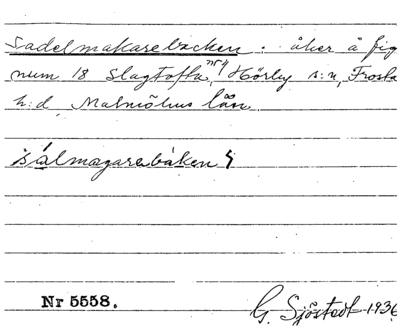 Sadelmakarebacken : åker å fig
num 18 Slagtofta nr 4 Hörby s:n, Frosta
h:d, Malmöhus län
sálmagarebåken
Nr 5558.
G. Sjöstedt 1936